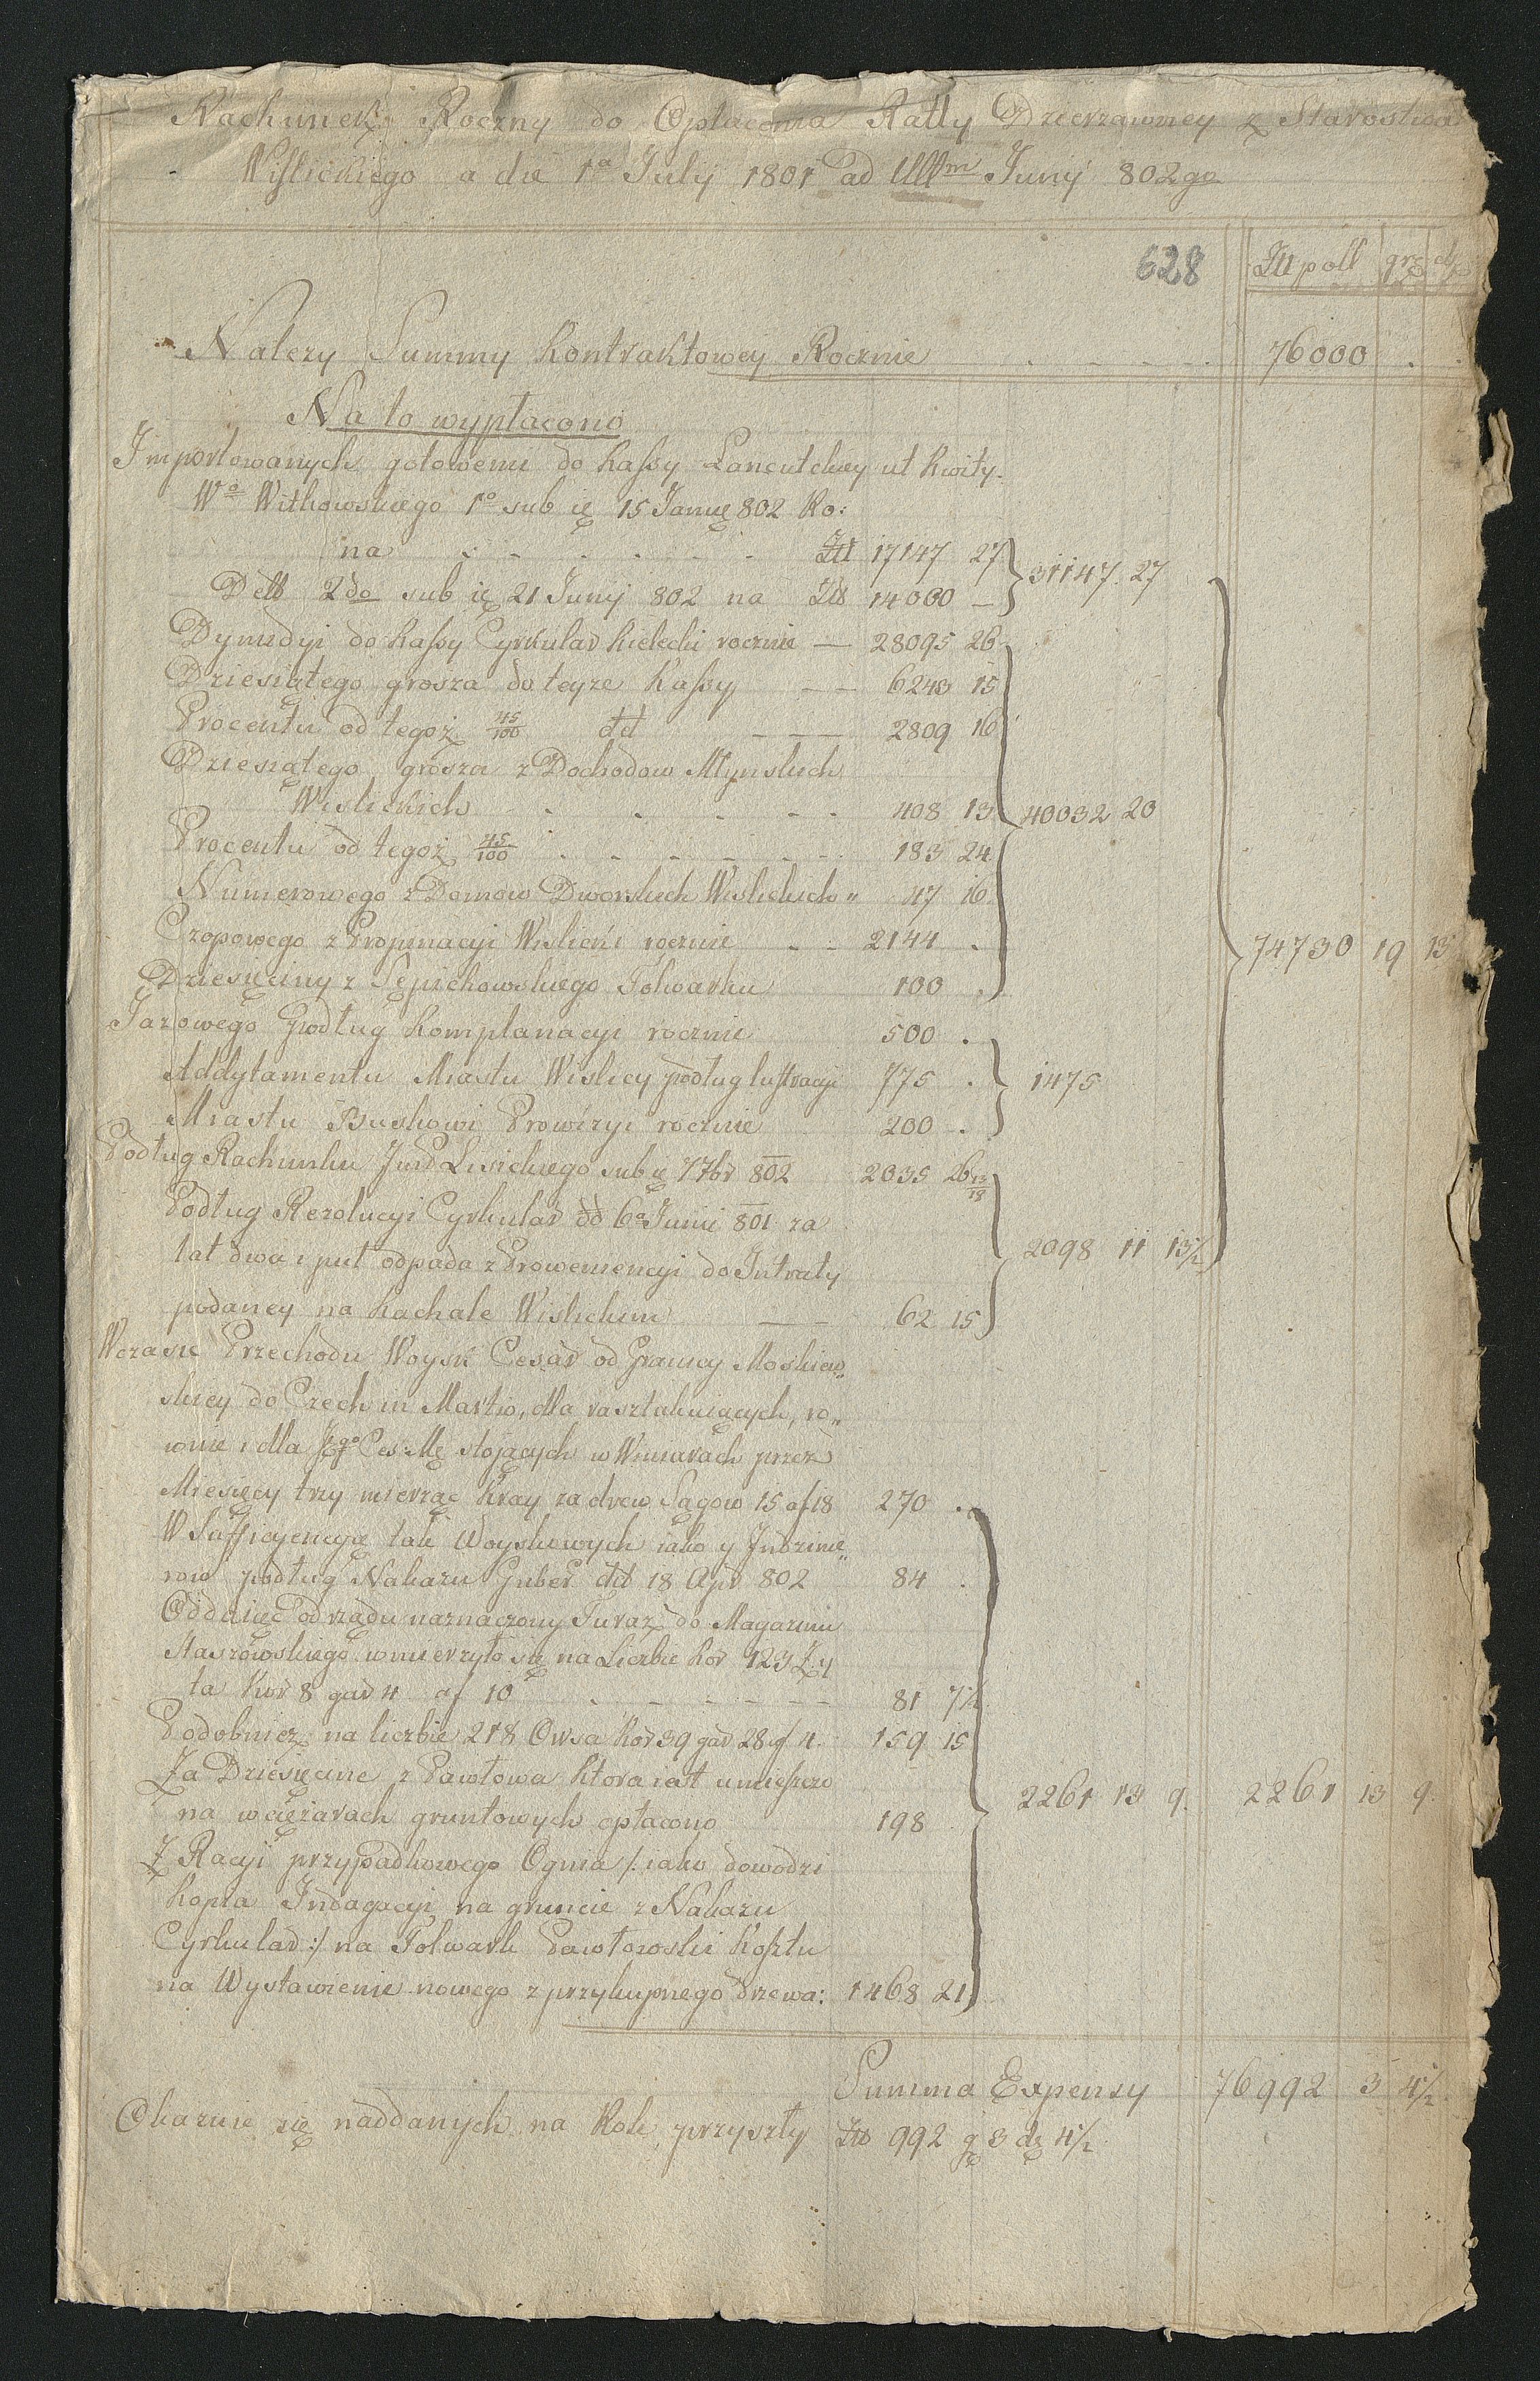 Rachunek Roczny do Opłacenia Ratty Dzierzawney z Starostwa
Wislickiego a die 1a July 1801 ad Ulltm Juny 802go
628
Zll poll grz d
Nalezy Summy Kontraktowey Rocznie 76000 .
Na to wypłacono
Importowanych gotowemi do Kassy Lancutckiey ut kwity.
Wo Witkowskiego 1o sub 15 Janu 802 Ro:
na Zll 17147 27
31147 27
Detto 2do sub 21 Juny 802 na Zll 14000 —
Dymidyi do Kassy Cyrkular Kielecki rocznie — 28095 26
Dziesiątego grosza do teyze Kassy — — 6243 15
Procentu od tegoż 45/100 dtt — — — 2809 16
Dziesiątego grosza z Dochodow Młynskich
Wislickich . . . . . 408 13 40032 20
Procentu od tegoż 45/100 183 24
Numerowego z Domow Dworskich Wislickich „ 47 16
Czopowego z Propinacyi Wislicki rocznie . . 2144 .
74730 19 13
Dziesięciny z Sępichowskiego Folwarku 100 .
Jazowego podług Komplanacyi rocznie 500 .
Addytamentu Miastu Wislicy podług lustracyi 775 . 1475
Miastu Buskowi Prowizyi rocznie 200 .
Podług Rachunku Lisickiego sub 7 7br 802 2035 26 13/18
Podług Rezolucyi Cyrkular dd 6a Junii 801 za
lat dwa i puł odpada z Proweniencyi do Intraty 2098 11 13½
podaney na Kachale Wislickim — — 62 15
Wczasie Przechodu Woysk Cesar od Granicy Moskiew„
skiey do Czech in Martio, dla rasztakuiących, ro„
wnie i dla Jego Ces: Mę stojących w Winiarach przez
Miesięcy trzy mierząc Kray za drew Sągow 15 af 18 270 .
W Sufficyencyę tak Woyskowych iako y Indzinie„
row podług Nakazu Guber dtt 18 Apr 802 84 .
Oddaiąc od rządu naznaczony Furaz do Magazinu
Staszowskiego wmierzyło się na Liczbie Kor 123 Ży
ta Kor 8 gar 4 af 10 . — — — — 81 7½
Podobniez na liczbie 218 Owsa Kor 39 gar 28 af 4. 159 15
Za Dziesięcine z Pawłowa ktora iest umieszczo
na w cięzarach gruntowych opłacono 198
2261 13 9. 2261 13 9.
Z Racyi przypadkowego Ognia /: iako dowodzi
Kopia Indagacyi na gruncie z Nakazu
Cyrkular :/ na Folwark Pawłowski Kosztu
na Wystawienie nowego z przykupnego Drzewa: 1468 21
Summa Expensy 76992 3 4½
Okazuie się naddanych na Rok przyszły Zll 992 g 3 d 4½